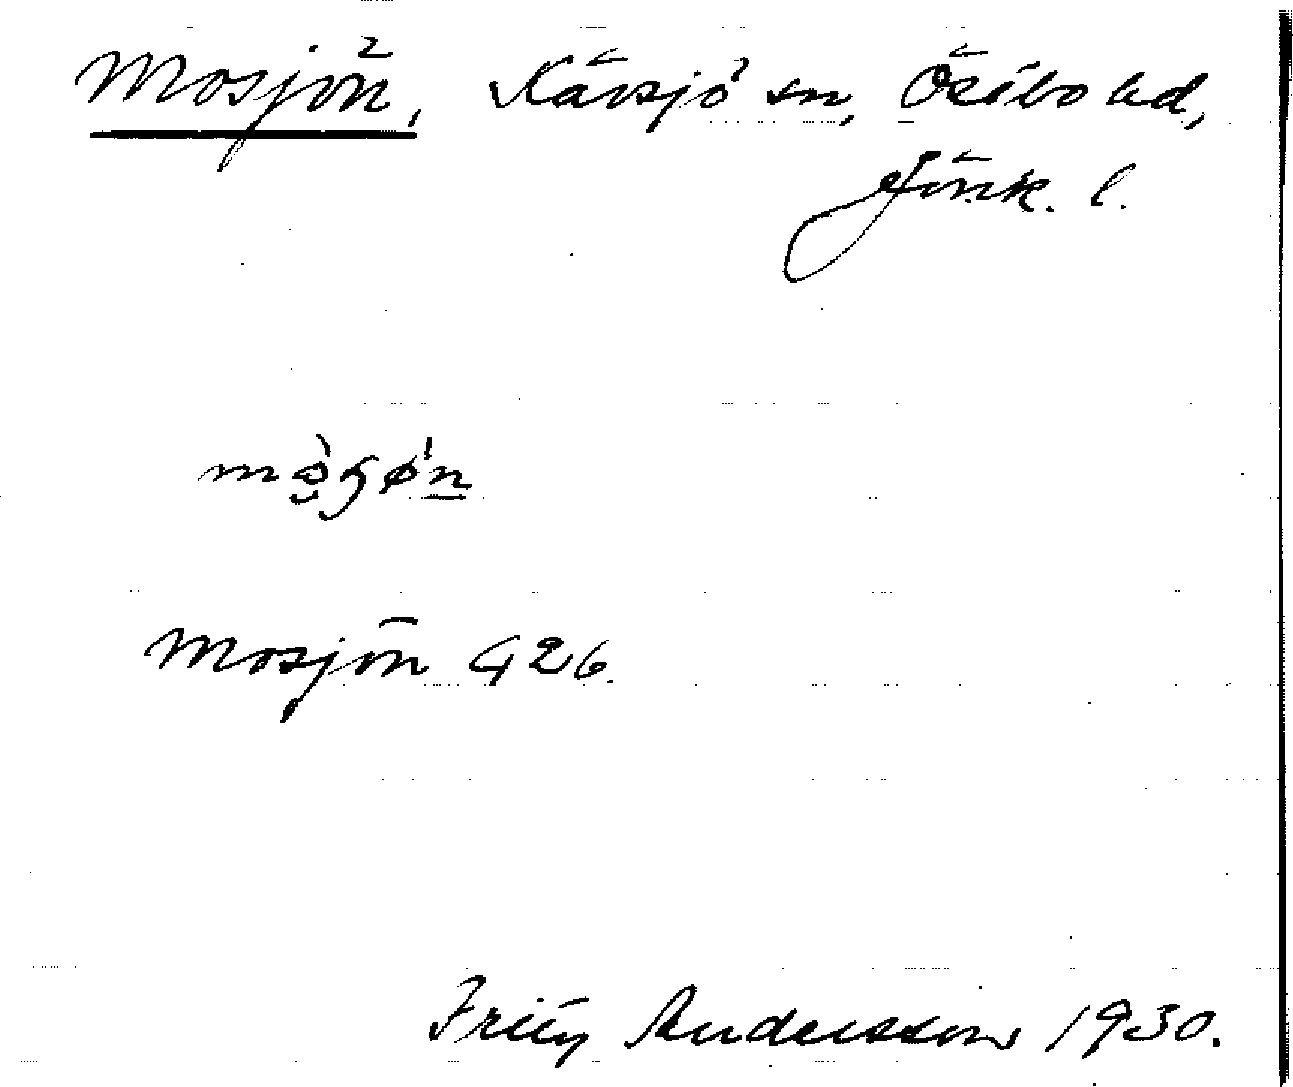 Mosjön, Kävsjö sn, Östbo hd,
Jönk. l.
Mosjön G 26.
Fritz Andersson 1930.